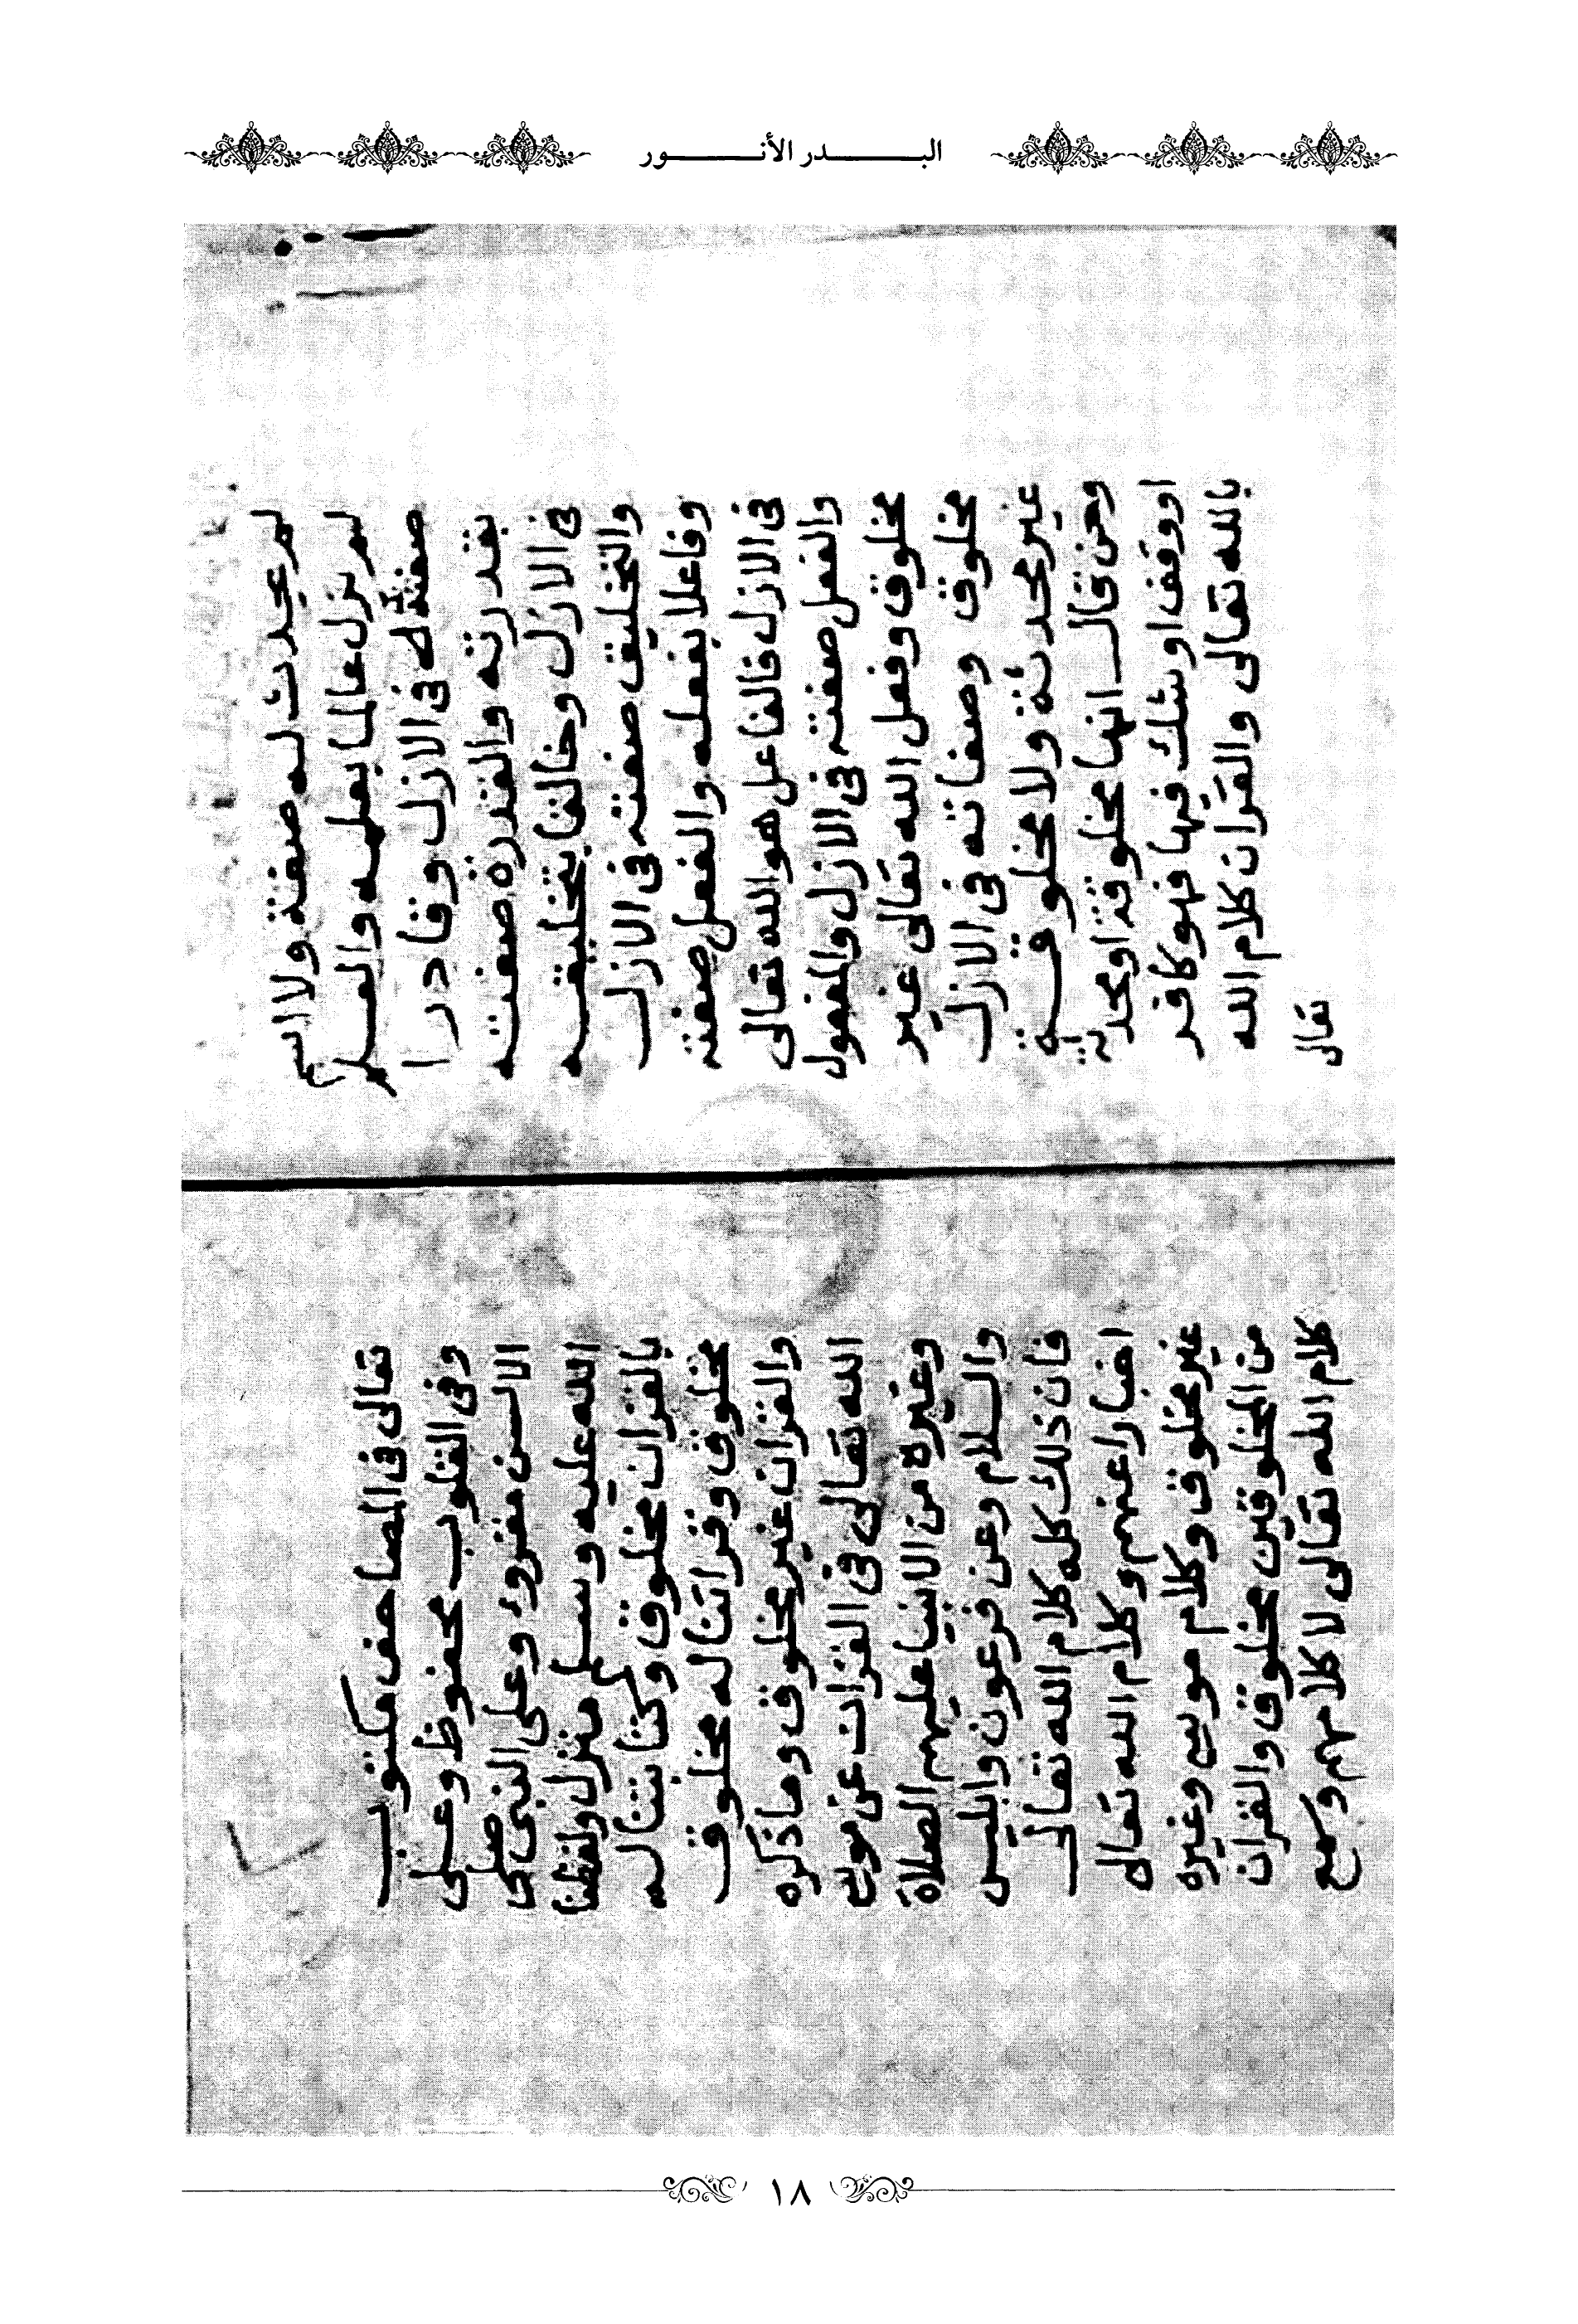 البـــــدر الأنـــــور
لم يحدث له صفة ولا اسم
لم يزل عالما بعلمه والعلم
صفة له في الازل وقادرا
بقدرته والقدرة صفته
في الازل وخالقا بتخليقه
والتخليق صفته في الازل
وفاعلا بفعله والفعل صفته
في الازل فالفاعل هو الله تعالى
والفعل صفته في الازل والمفعول
مخلوق وفعل الله تعالى غير
مخلوق وصفاته في الازل
غير محدثة ولا مخلوقة
ومن قال انها مخلوقة او محدثة
او وقف او شك فيها فهو كافر
بالله تعالى والقران كلام الله
تعالى
تعالى في المصاحف مكتوب
وفي القلوب محفوظ وعلى
الالسن مقروء وعلى النبي صلى
الله عليه وسلم منزل ولفظنا
بالقران مخلوق وكتابتنا له
مخلوق وقراتنا له مخلوق
والقران غير مخلوق وما ذكره
الله تعالى في القران عن موسى
وغيره من الانبيا عليهم الصلاة
والسلام وعن فرعون وابليس
فان ذلك كله كلام الله تعالى
اخبارا عنهم وكلام الله تعالى
غير مخلوق وكلام موسى وغيره
من المخلوقين مخلوق والقران
كلام الله تعالى لا كلامهم وسمع
١٨